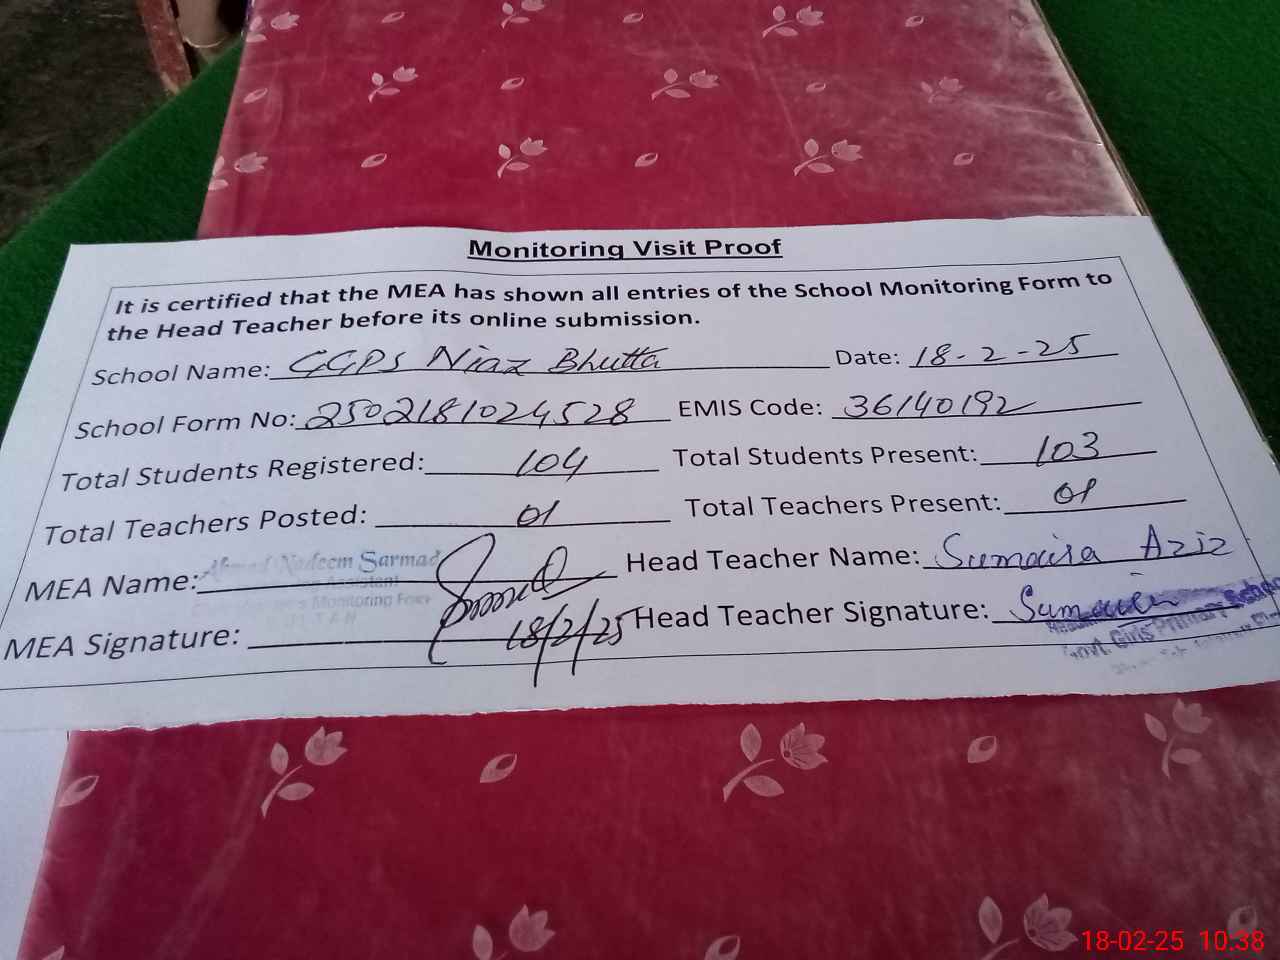 Monitoring Visit Proof
It is certified that the MEA has shown all entries of the School Monitoring Form to
the Head Teacher before its online submission.
School Name: GGPS Niaz Bhutta Date: 18-2-25
School Form No: 2502181024528 EMIS Code: 36140192
Total Students Registered: 104 Total Students Present: 103
Total Teachers Posted: 01 Total Teachers Present: 01
MEA Name: Ahmed Nadeem Sarmad Head Teacher Name: Sumaira Aziz
Monitoring Force
MEA Signature: 18/2/25 Head Teacher Signature: Sumaira
Govt. Girls Primary School
18-02-25 10:38